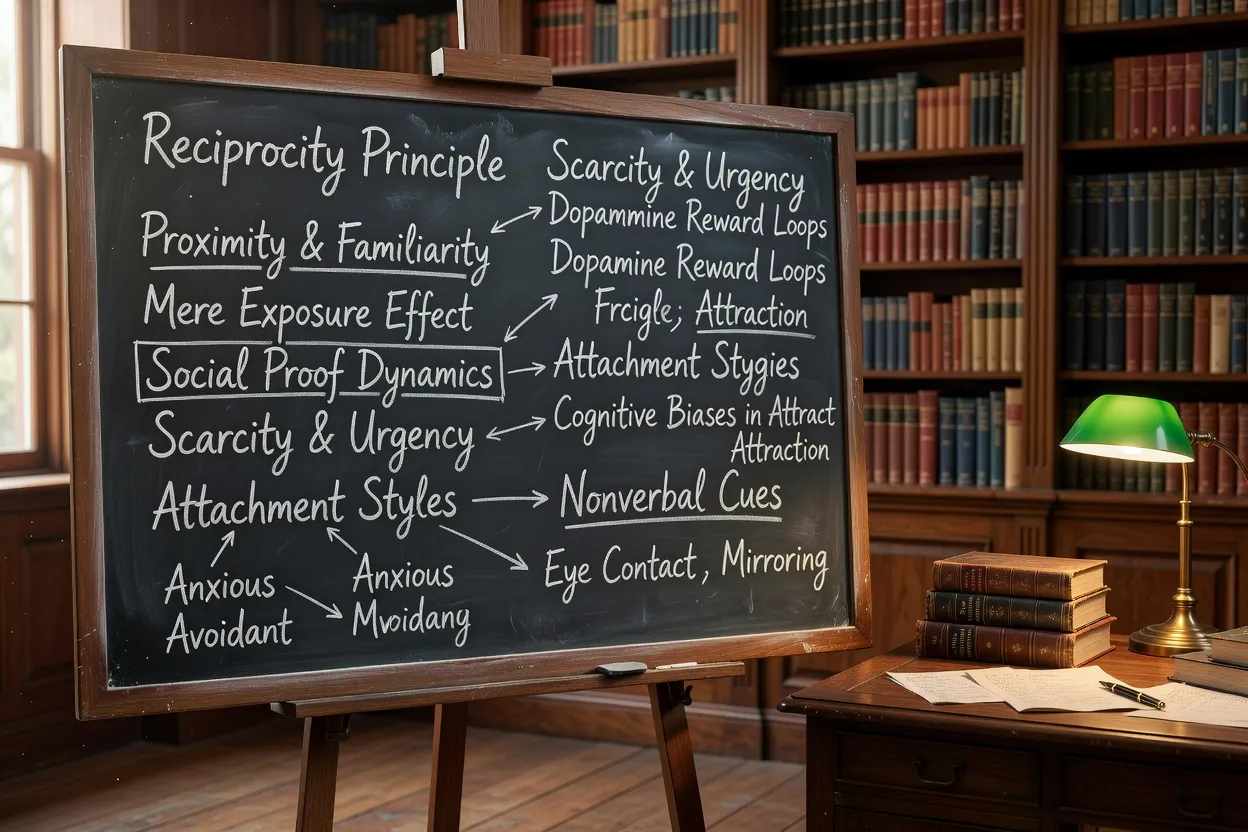 Reciprocity Principle
Proximity & Familiarity
Mere Exposure Effect
Social Proof Dynamics
Scarcity & Urgency
Attachment Styles
Anxious
Avoidant
Anxious
Mvoidang
Scarcity & Urgency
Dopammine Reward Loops
Dopamine Reward Loops
Frcigle; Attraction
Attachment Stygies
Cognitive Biases in Attract
Attraction
Nonverbal Cues
Eye Contact, Mirroring